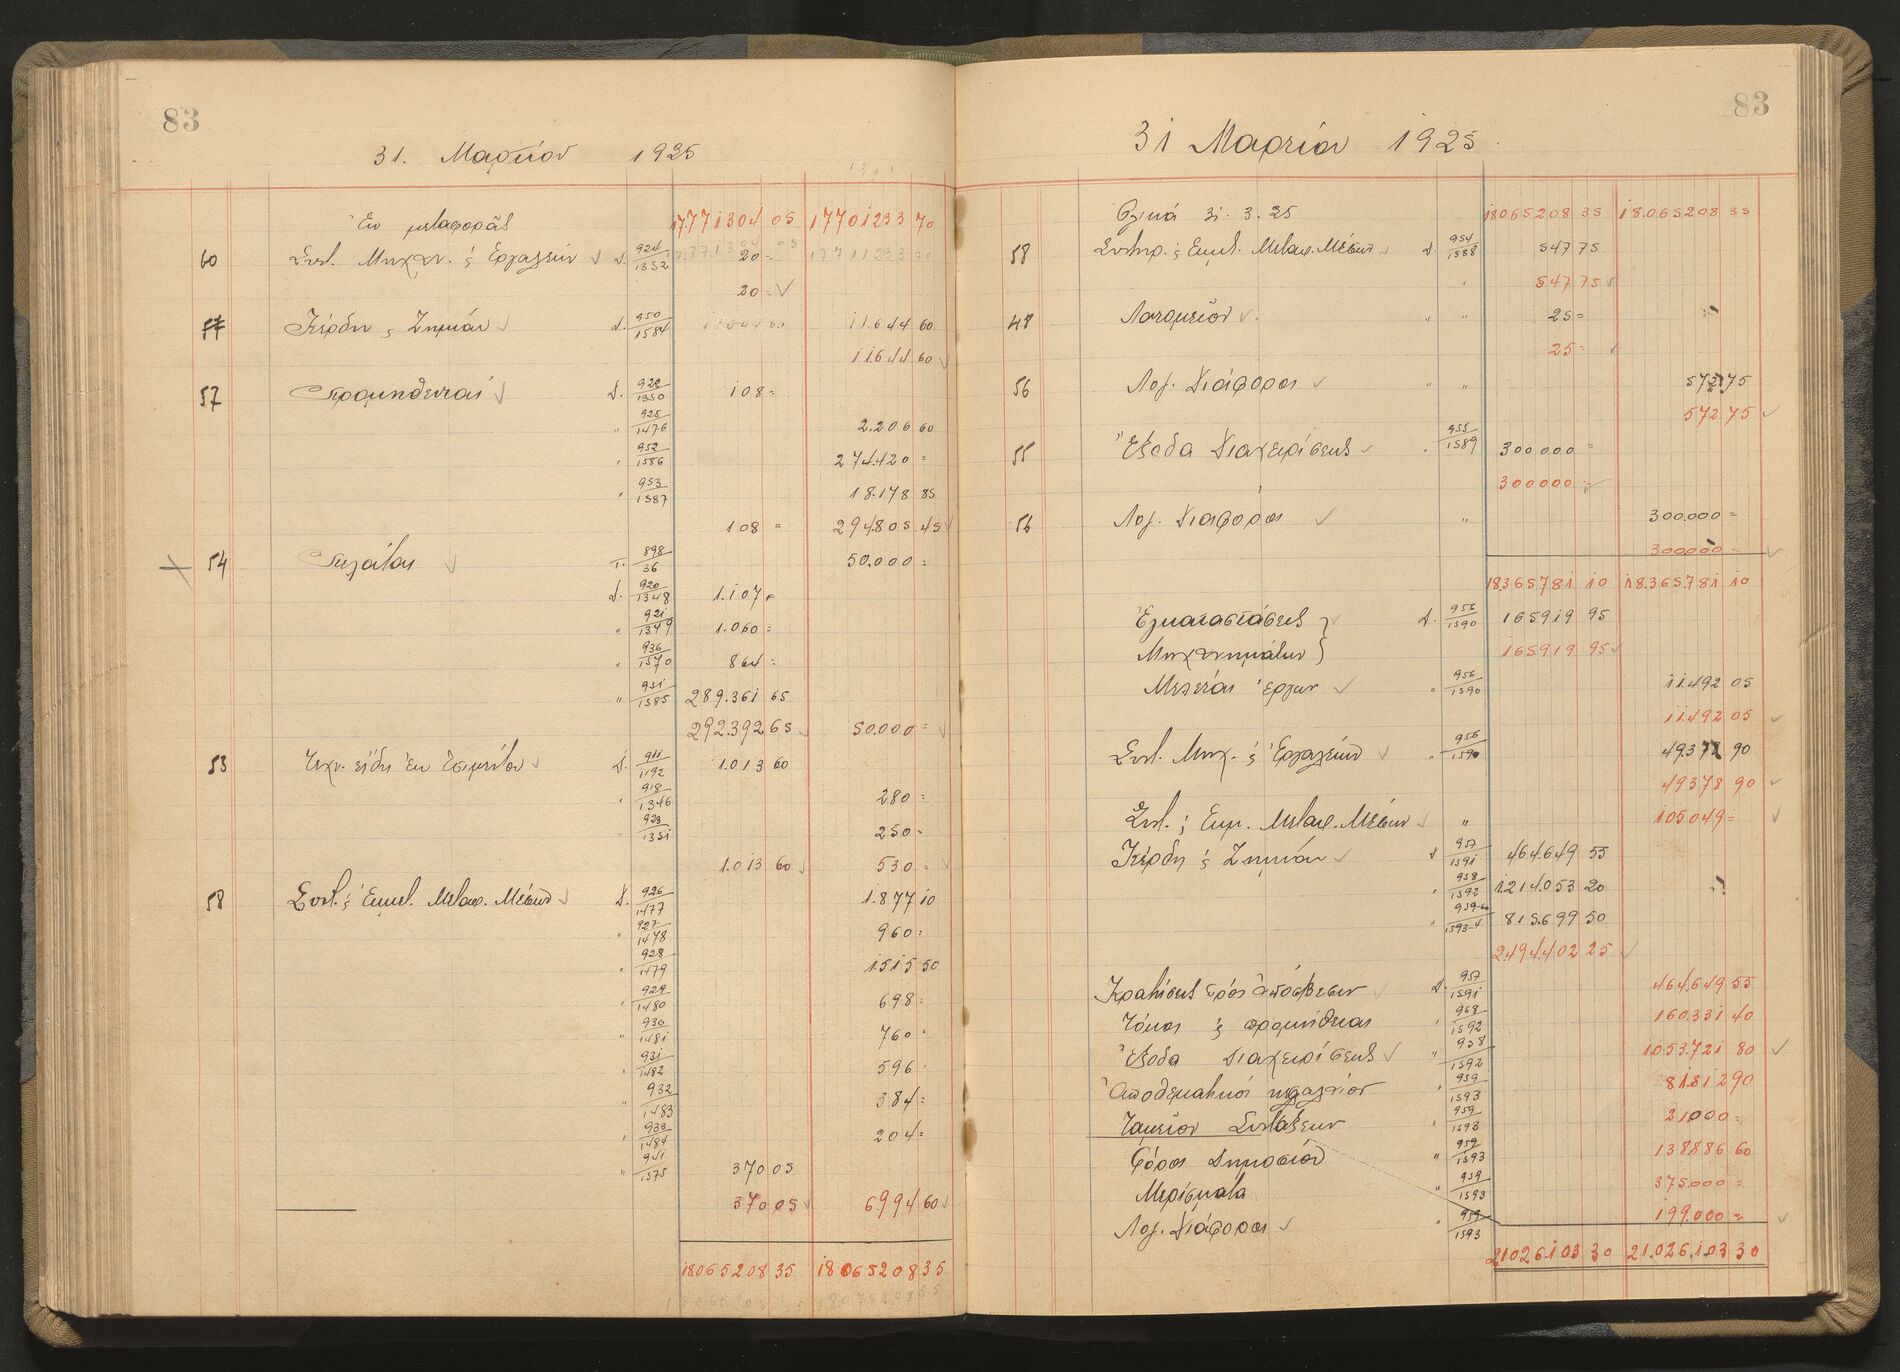 83
31. Μαρτίου 1925
Ἐκ μεταφορᾶς 17.771304 05 17701233 70
60 Συντ. Μηχαν. & Ἐργαλείων Δ. 924/1352 20 =
20 =
Κέρδη & Ζημίαι Δ. 950/1584 11.644 60
11.644 60
57 Προμηθευταί Δ. 922/1350 108 =
" 925/1476 2.206 60
" 952/1586 274.420 =
" 953/1587 18.178 85
108 = 294.805.45
54 Πελάται Τ. 898/36 50.000 =
Δ. 920/1348 1.107 =
" 921/1349 1.060 =
" 936/1570 864 =
" 951/1585 289.361 65
292.392 65 50.000 =
53 Τεχν. εἴδη ἐκ Τσιμέντου Δ. 911/1192 1.013 60
" 918/1346 280 =
" 923/1351 250 =
1.013 60 530 =
58 Συντ. & Ἐκμετ. Μεταφ. Μέσων Δ. 926/1477 1.877 10
" 927/1478 960 =
" 928/1479 1.515 50
" 929/1480 698 =
" 930/1481 760 =
" 931/1482 596 =
" 932/1483 384 =
" 933/1484 204 =
" 941/1575 370 05
370 05 6.994 60
18.065208 35 18.065208 35
83
31 Μαρτίου 1925
Ὁλικά 31.3.25 18065208 35 18.065208 35
58 Συντηρ. & Ἐκμετ. Μεταφ. Μέσων Δ. 954/1588 547 75
" 547 75
48 Λατομεῖον " " 25 =
25 =
56 Λογ. Διάφοροι " " 572 75
572 75
55 Ἔξοδα Διαχειρίσεως " 955/1589 300000 =
300000 =
56 Λογ. Διάφοροι " 300.000 =
300000 =
18365781 10 18.365781 10
Ἐγκαταστάσεις Δ. 956/1590 165919 95
Μηχανημάτων 165919 95
Μελέται ἔργων " 956/1590 11.492 05
11.492 05
Συντ. Μηχ. & Ἐργαλείων " 956/1590 49.378 90
49378 90
Συντ. & Ἐκμ. Μεταφ. Μέσων " 105049 =
Κέρδη & Ζημίαι Δ 957/1591 464.649 55
" 958/1592 1.214.053 20
" 959-60/1593-4 815.699 50
2.494.402 25
Κρατήσεις πρός ἀπόσβεσιν Δ. 957/1591 464.649 55
Τόκοι & προμήθειαι " 958/1592 160.331 40
Ἔξοδα Διαχειρίσεως " 958/1592 1.053.721 80
Ἀποθεματικόν κεφάλαιον " 959/1593 81.812 90
Ταμεῖον Συντάξεων " 959/1593 21.000 =
Φόροι Δημοσίου " 959/1593 138886 60
Μερίσματα " 959/1593 375.000 =
199.000 =
Λογ. Διάφοροι " 959/1593
21.026.103 30 21.026.103 30